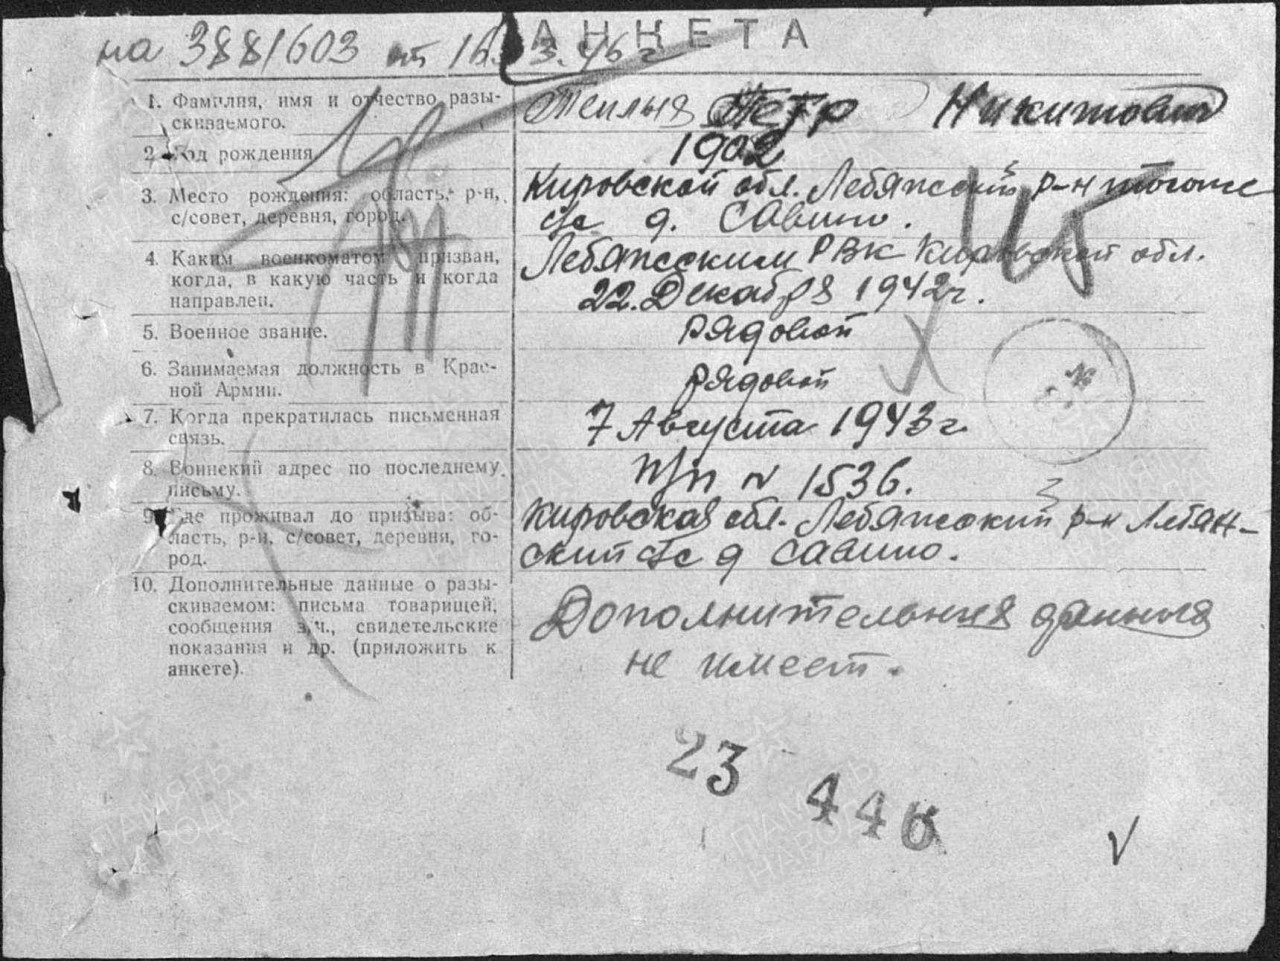 на 3881603 от 16.3.46 г
АНКЕТА
1. Фамилия, имя и отчество разы-
скиваемого.
Теплых Петр Никитович
2. Год рождения.
1902
3. Место рождения: область, р-н,
с/совет, деревня, город.
Кировской обл. Лебяжский р-н тогоже
с/с д. Савино.
4. Каким военкоматом призван,
когда, в какую часть и когда
направлен.
Лебяжским РВК Кировской обл.
22. Декабря 1942 г.
5. Военное звание.
рядовой
6. Занимаемая должность в Крас-
ной Армии.
рядовой
7. Когда прекратилась письменная
связь.
7 Августа 1943 г.
8. Воинский адрес по последнему
письму.
п/п N 1536.
9. Где проживал до призыва: об-
ласть, р-н, с/совет, деревня, го-
род.
Кировская обл. Лебяжский р-н Лебяж-
ский с/с д Савино.
10. Дополнительные данные о разы-
скиваемом: письма товарищей,
сообщения в/ч., свидетельские
показания и др. (приложить к
анкете).
Дополнительных данных
не имеет.
23 446
ПАМЯТЬ
НАРОДА
ПАМЯТЬ
НАРОДА